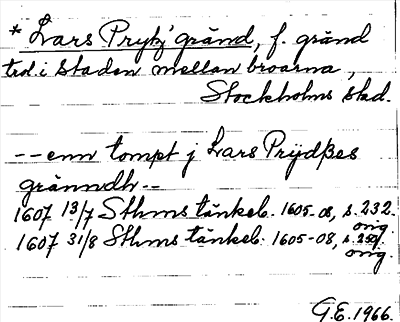 * Lars Prykz gränd, f. gränd
trol. i Staden mellan broarna,
Stockholms stad.
-- enn tompt j Lars Prijdßes
gränndh --
1607 13/7 Sthms tänkeb. 1605-08, s. 232.
orig.
1607 31/8 Sthms tänkeb. 1605-08, s. 250.
orig.
G.E. 1966.